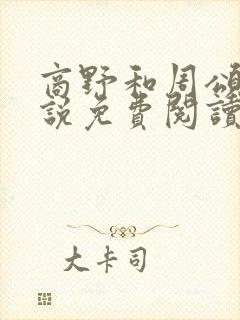 商野和周頌
說免費閱讀
大卡司